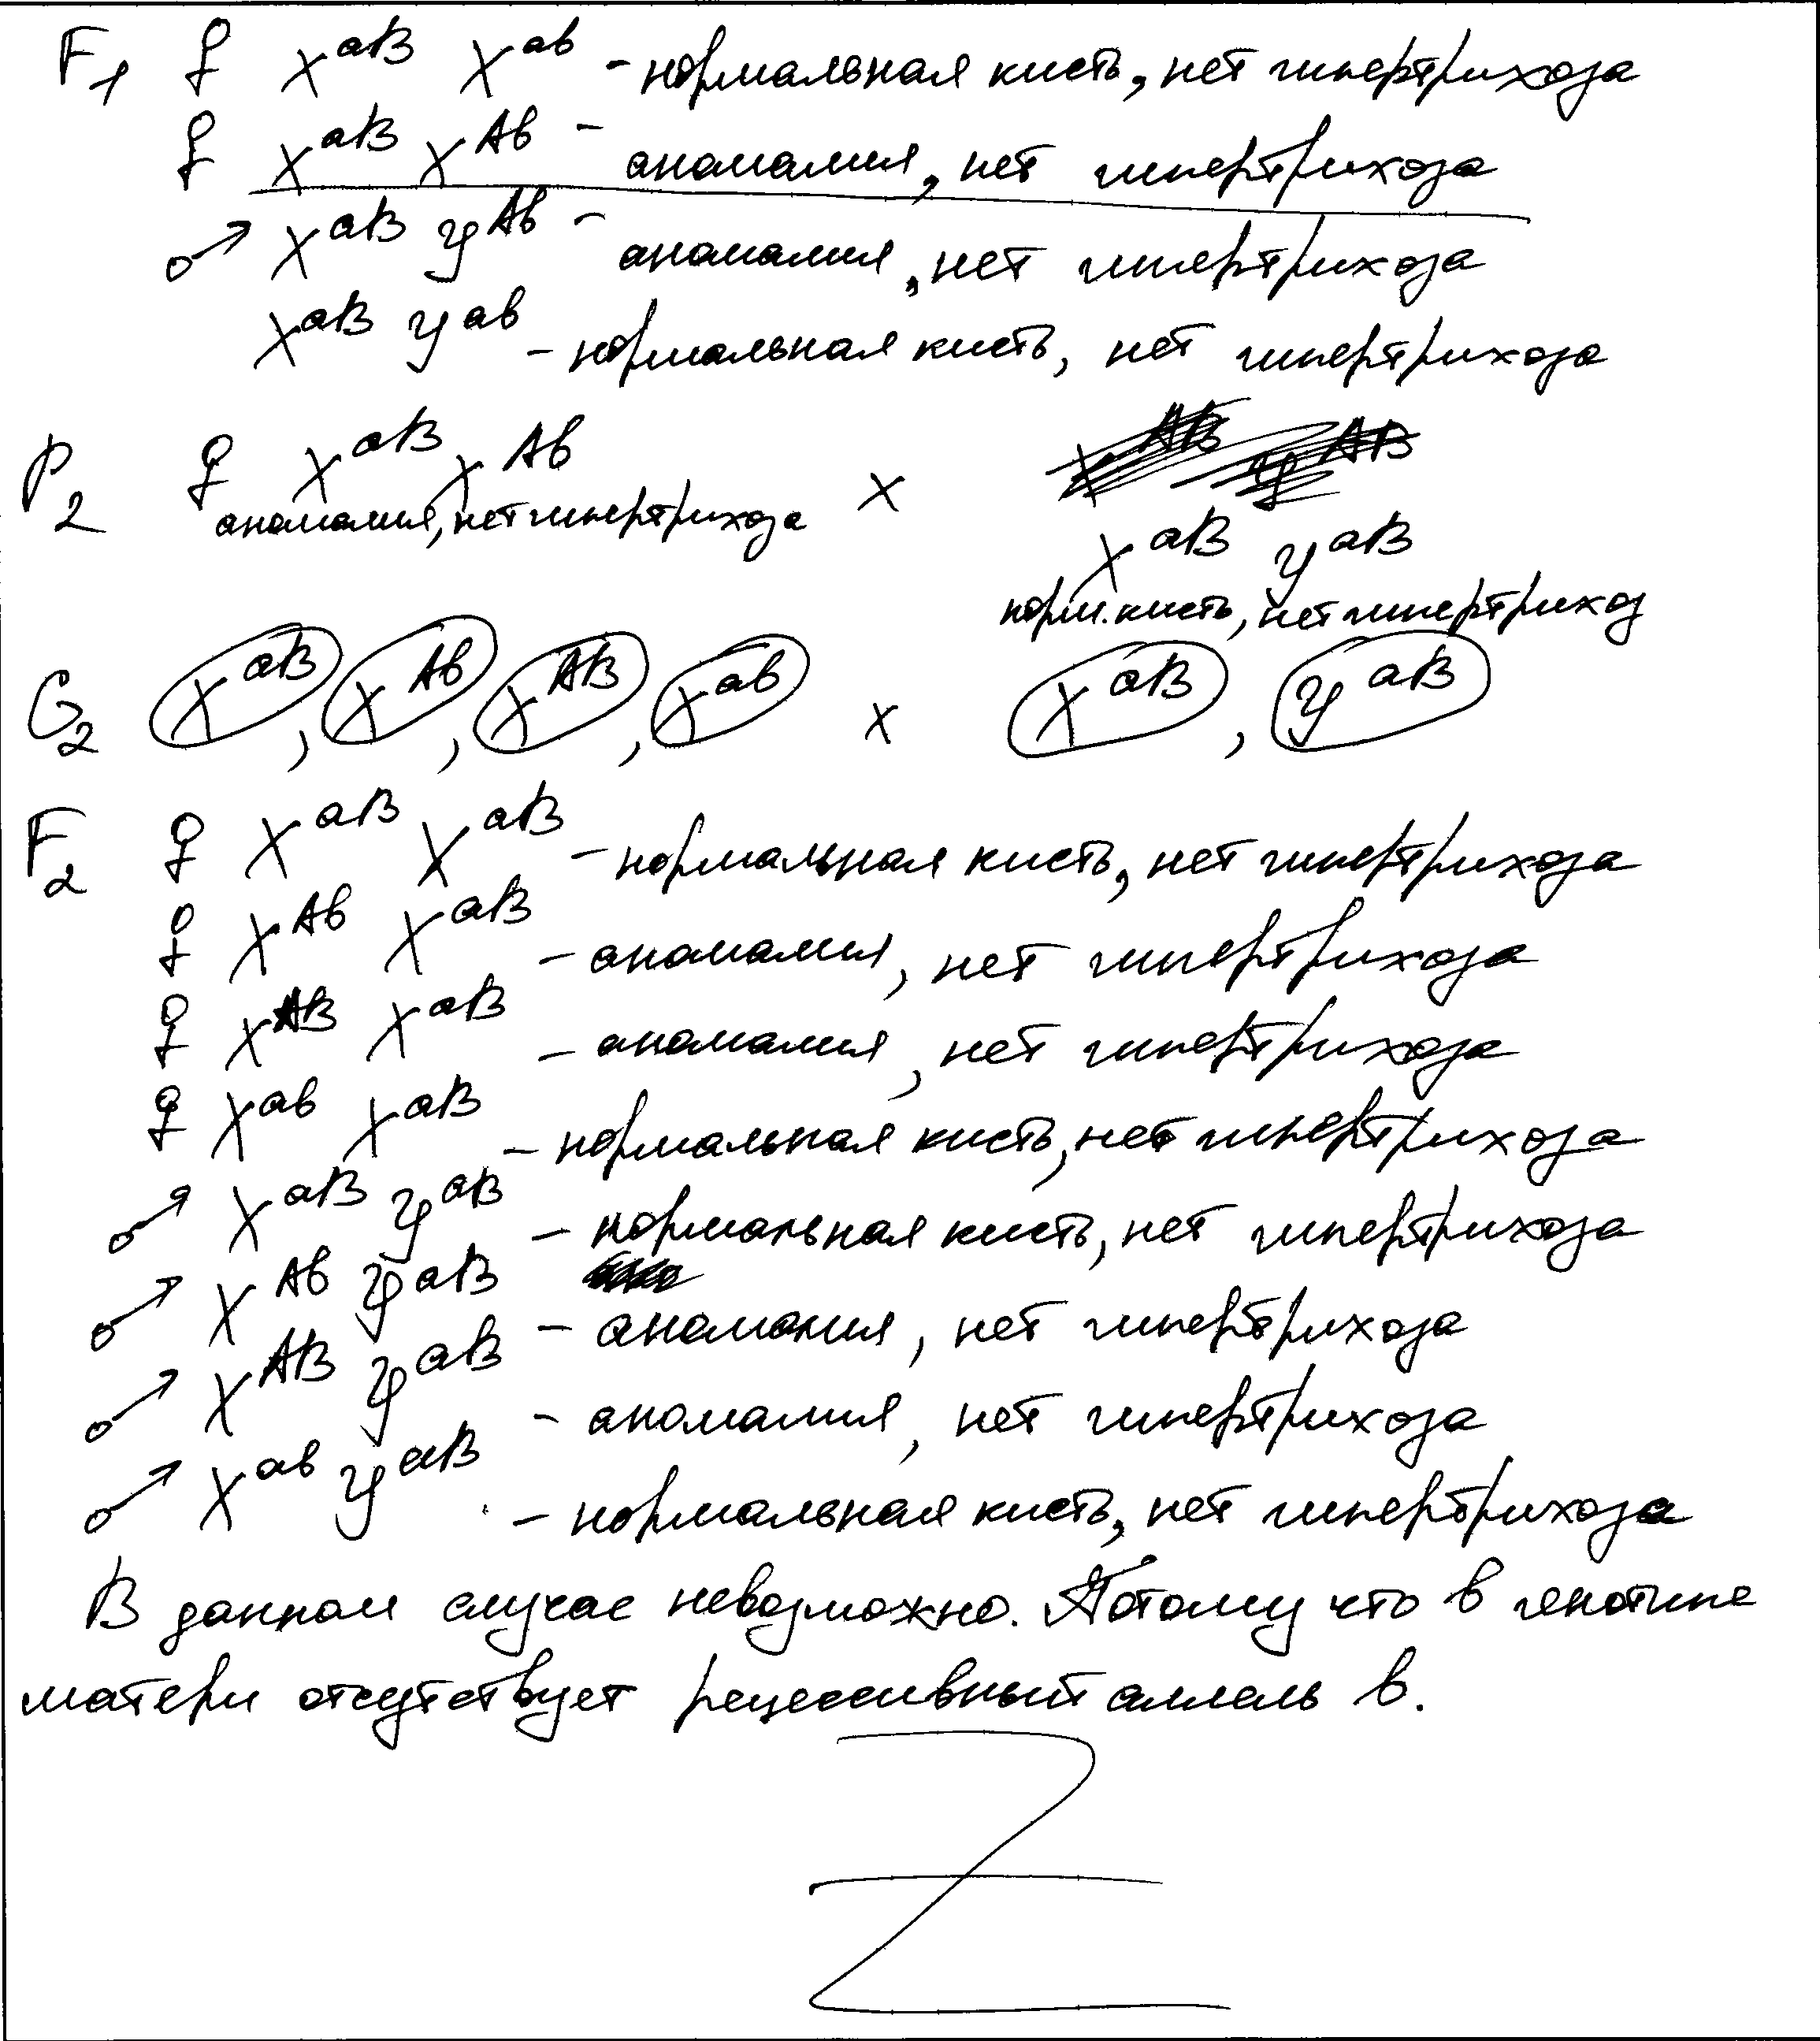 F₁ ♀ X^aB X^ab - нормальная кисть, нет гипертрихоза
♀ X^aB X^Ab - аномалия, нет гипертрихоза
♂ X^aB У^Ab - аномалия, нет гипертрихоза
X^aB У^ab - нормальная кисть, нет гипертрихоза
P₂ ♀ X^aB X^Ab × X^aB У^aB
аномалия, нет гипертрихоза норм. кисть, нет гипертрихоз
G₂ X^aB, X^Ab, X^AB, X^ab × X^aB, У^aB
F₂ ♀ X^aB X^aB - нормальная кисть, нет гипертрихоза
♀ X^Ab X^aB - аномалия, нет гипертрихоза
♀ X^AB X^aB - аномалия, нет гипертрихоза
♀ X^ab X^aB - нормальная кисть, нет гипертрихоза
♂ X^aB У^aB - нормальная кисть, нет гипертрихоза
♂ X^Ab У^aB - аномалия, нет гипертрихоза
♂ X^AB У^aB - аномалия, нет гипертрихоза
♂ X^ab У^aB - нормальная кисть, нет гипертрихоза
В данном случае невозможно. Потому что в генотипе
матери отсутствует рецессивный аллель в.